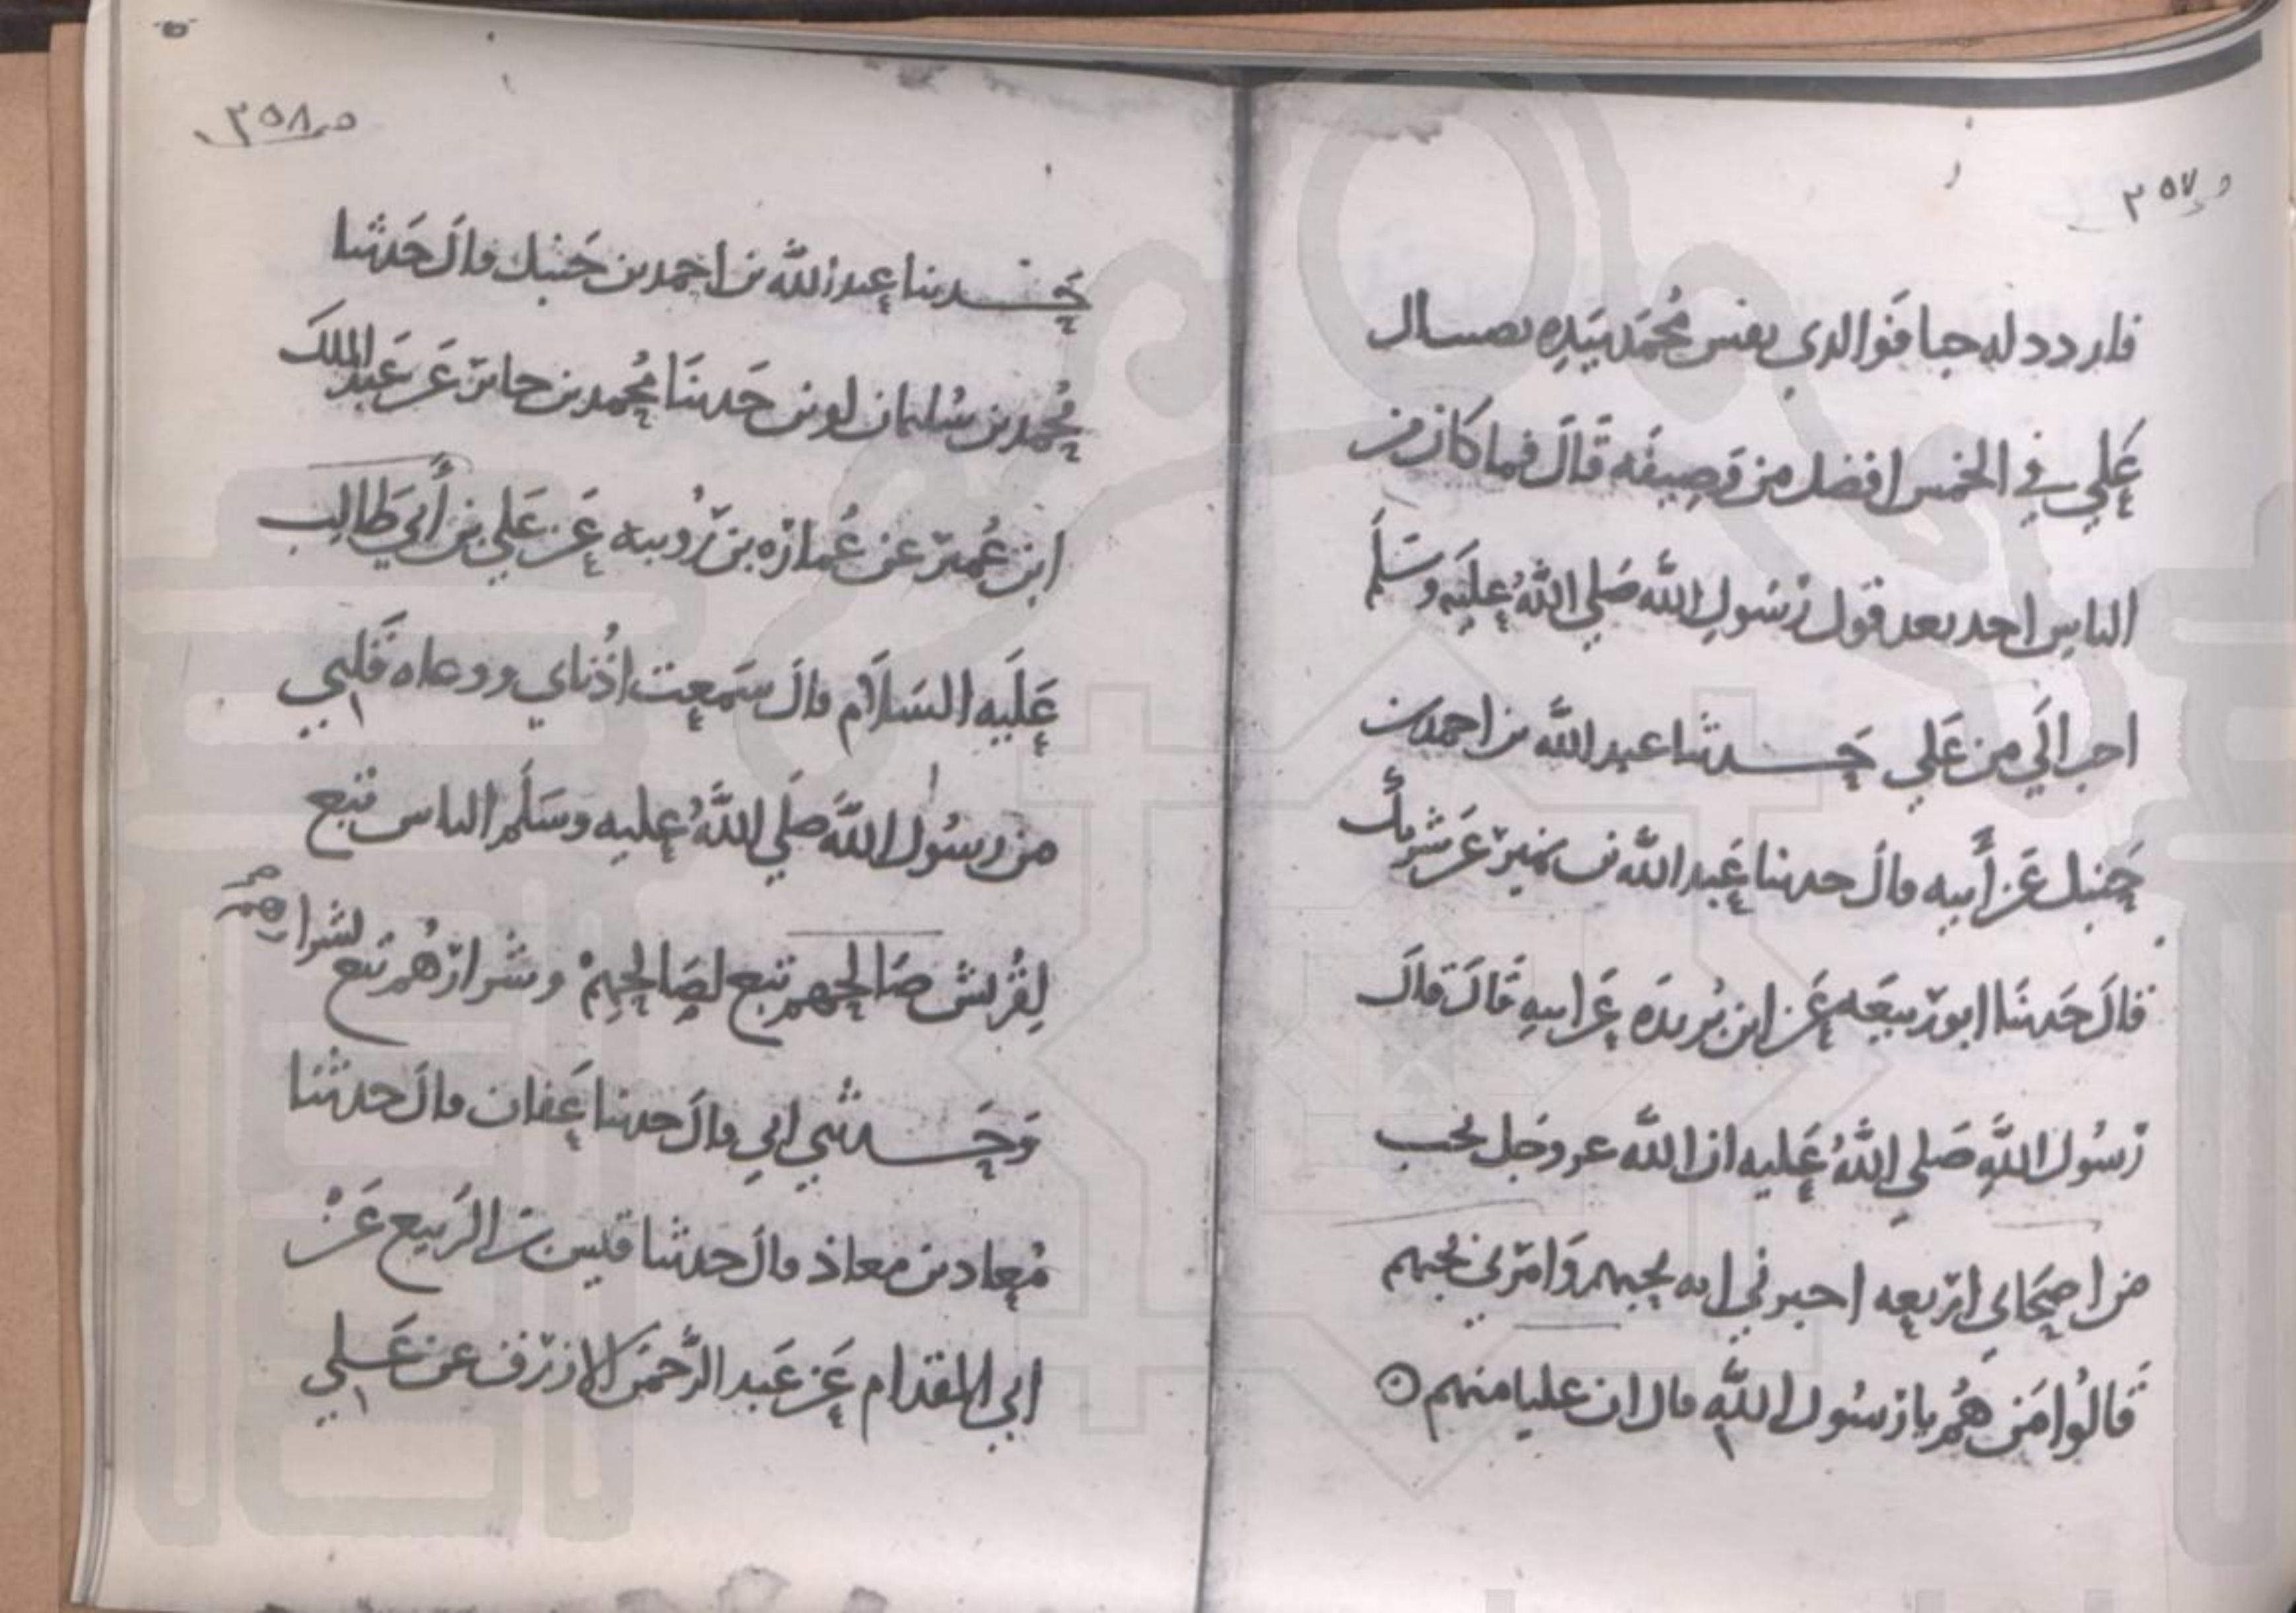 ص ٣٥٧
فازدد له حبا فوالدي نفس محمد بيده لنصيب ال
علي في الخمس افضل من وصيفه قال فما كان من
الناس احد بعد قول رسول الله صلى الله عليه وسلم
احب الي من علي حدثنا عبد الله بن احمد بن
حنبل عن أبيه قال حدثنا عبد الله بن نمير عن شريك
قال حدثنا ابو ربيعه عن ابن بريده عن ابيه قال قال
رسول الله صلى الله عليه ان الله عز وجل يحب
من اصحابي اربعه اخبرني انه يحبهم وامرني بحبهم
قالوا من هم يا رسول الله قال ان عليا منهم
ص ٣٥٨
حدثنا عبد الله بن احمد بن حنبل قال حدثنا
محمد بن سليمان لوين حدثنا محمد بن جابر عن عبد الملك
ابن عمير عن عماره بن رويبه عن علي بن أبي طالب
عليه السلام قال سمعت اذناي ووعاه قلبي
من رسول الله صلى الله عليه وسلم الناس تبع
لقريش صالحهم تبع لصالحهم وشرارهم تبع لشرارهم
وحدثني ابي قال حدثنا عفان قال حدثنا
معاد بن معاذ قال حدثنا قيس بن الربيع عن
ابي المقدام عن عبد الرحمن الازرق عن علي